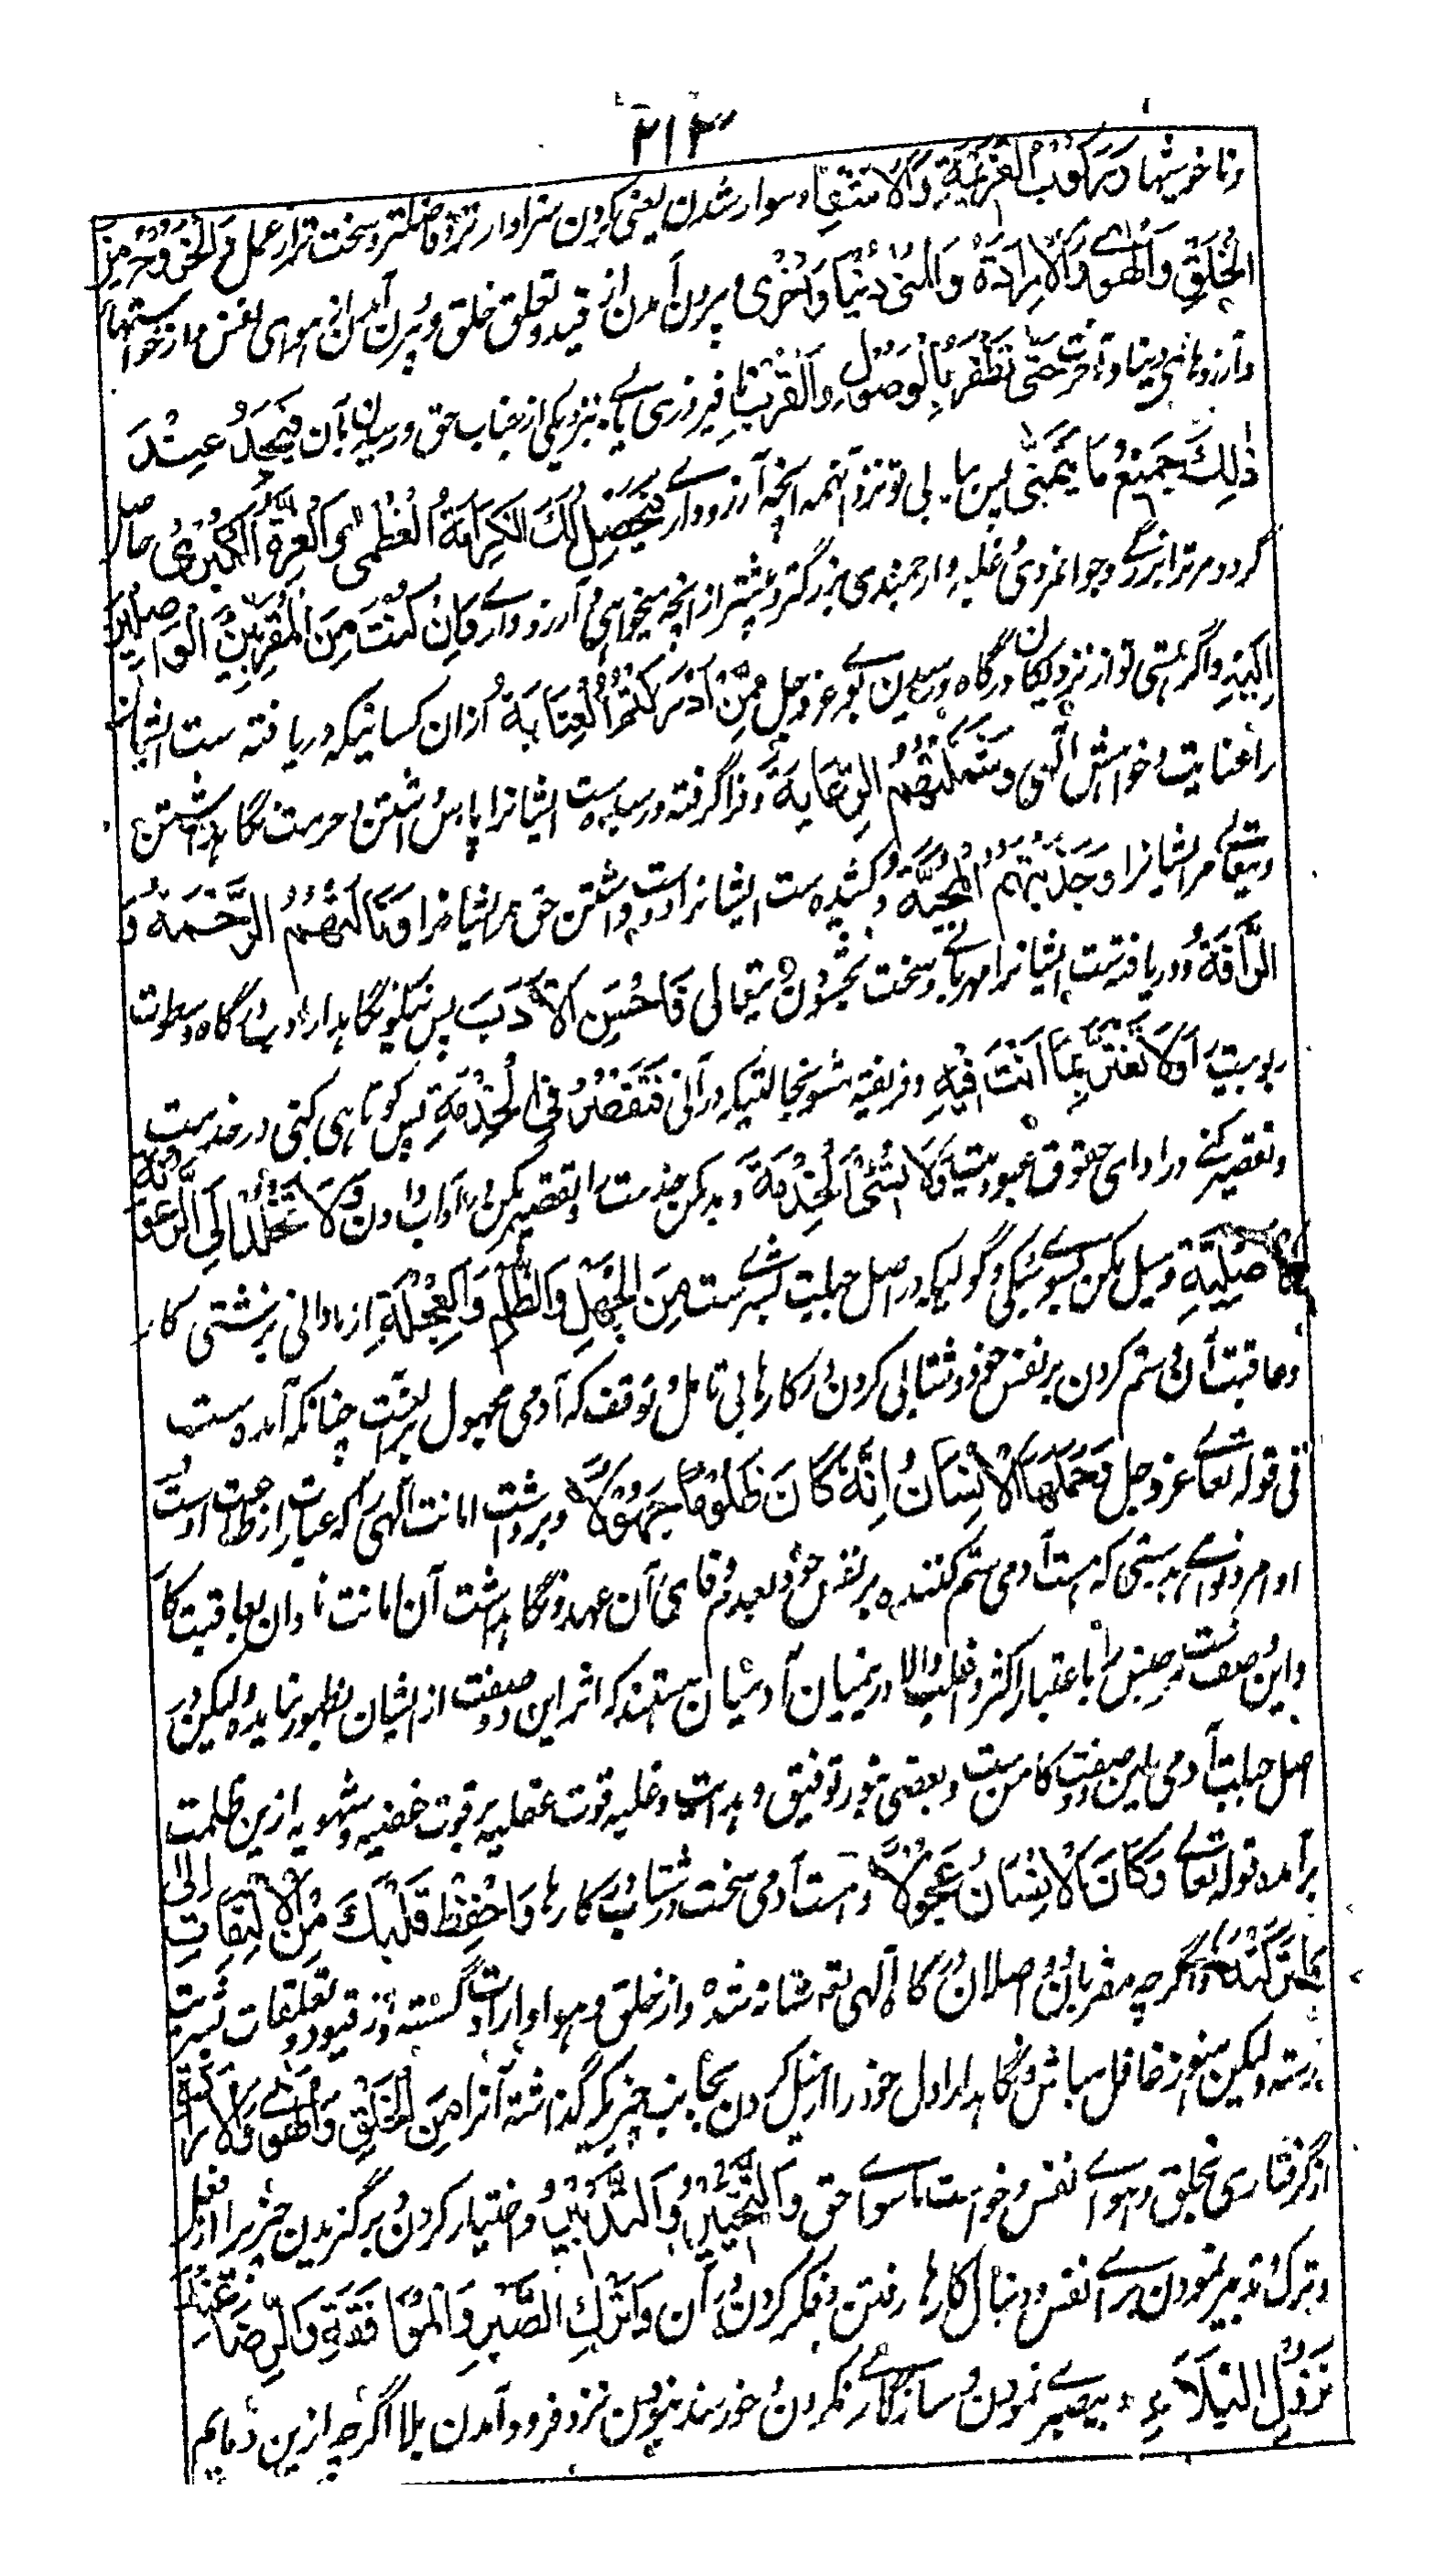 ۲۱۳
وناخوشیها وَرَكُوْبُ الْعَزِيْمَةِ وَالاِنْتِقَا وسوار شدن یعنی کردن سزاوارتر و فاضلتر و سخت تر از عمل وَالْخُرُوْجُ مِنَ
الْخَلْقِ وَالْهَوٰى وَالْاِرَادَةِ وَالْمُنٰى دُنْيَا وَاُخْرٰى و بیرون آمدن از قید و تعلق خلق و بیرون آمدن از هوای نفس و از خواستهای
و آرزوهای دنیا و آخرت حَتّٰى تَظْفَرَ بِالْوُصُوْلِ وَالْقُرْبِ تا فیروزی یابی بنزدیکی از جناب حق و رسیدن بآن فَيَجِدُ عِنْدَ
ذٰلِكَ جَمِيْعُ مَا يَتَمَنّٰى پس یابی تو نزد آنهمه آنچه آرزو داری فَيَحْصِلُ لَكَ الْكَرَامَةُ الْعُظْمٰى وَالْعِزَّةُ الْكُبْرٰى حاصل
گردد مر ترا بزرگی و جوانمردی و غلبه و ارجمندی بزرگتر و بیشتر از آنچه میخواهی و آرزو داری فَاِنْ كُنْتَ مِنَ الْمُقَرَّبِيْنَ الْوَاصِلِيْنَ
اِلَيْهِ و اگر هستی تو از نزدیکان درگاه و رسیدن بوی عز و جل مِمَّنْ اَدْرَكَتْهُمُ الْعِنَايَةُ ازان کسانیکه دریافته ست ایشان
را عنایت و خواهش الهی وَشَمَلَتْهُمُ الرِّعَايَةُ و فرا گرفته و رسیده ست ایشانرا پاس داشتن حرمت نگاهداشتن
وتعالی مر ایشانرا وَجَذَبَتْهُمُ الْمَحَبَّةُ و کشیده ست ایشانرا دوست داشتن حق مر ایشانرا وَنَالَتْهُمُ الرَّحْمَةُ وَ
الرَّأْفَةُ و دریافته ست ایشانرا مهربانی و سخت بخشودن ویتعالی فَاَحْسِنِ الْاَدَبَ پس نیکو نگاهدار ادب درگاه و سطوت
ربوبیت را وَلَا تَغْتَرَّ بِمَا اَنْتَ فِيْهِ و فریفته مشو بحالتیکه درآنی فَتَقْصُرُ فِي الْخِدْمَةِ پس کوتاهی کنی در خدمت
و تقصیر کنی در ادای حقوق عبودیت وَلَا تُسِئِ الْخِدْمَةَ و بد مکن خدمت را و تقصیر مکن در آداب دادن وَلَا تَخْلُدْ اِلَى الرُّعُوْنَةِ
الْاَصْلِيَّةِ و میل مکن بسوی سبکی و گولی که در اصل جبلت بشری ست مِنَ الْجَهْلِ وَالظُّلْمِ وَالْعَجَلَةِ از نادانی بزشتی کار
و عاقبت آن و ستم کردن بر نفس خود و شتابی کردن در کارها بی تامل و توقف که آدمی مجبول بر آنست چنانکه آمده ست
فی قوله تعالی عز و جل وَحَمَلَهَا الْاِنْسَانُ اِنَّهٗ كَانَ ظَلُوْمًا جَهُوْلًا و برداشت امانت الهی را که عبارت از طاعت اوست
اوامر و نواهی بدرستی که هست آدمی ستم کننده بر نفس خود بعدم وفای آن عهد و نگاهداشت آن امانت نادان بعاقبت کار
و این صفت جنس را باعتبار اکثر و اغلب والا درینمیان آدمیان هستند که اثر این دو صفت از ایشان بظهور نیامده ولیکن در
اصل جبلت آدمی باین صفت دو کامن ست و بعضی بنور توفیق و هدایت و غلبه قوت عقلیه بر قوت غضبیه و شهویه ازین ظلمت
برآمده قوله تعالی وَكَانَ الْاِنْسَانُ عَجُوْلًا و هست آدمی سخت و شتاب در کارها وَاحْفَظْ قَلْبَكَ مِنَ الْاِلْتِفَاتِ اِلٰى
مَا تَرَكْتَهٗ و اگرچه مقربان و اصلان درگاه الهی شده و از خلق و هوا و ارادت گسسته و از قیود و تعلقات بشریت
رسته ولیکن هنوز غافل مباش و نگاهدار دل خود را از میل کردن بجانب چیزیکه گذاشتۀ آنرا مِنَ الْخَلْقِ وَالْهَوٰى وَالْاِرَادَةِ
از گرفتاری بخلق و هوای نفس و خواست ماسوای حق وَالتَّخَيُّرِ وَالتَّدْبِيْرِ و اختیار کردن و برگزیدن چیزیرا از فعل
و ترک و تدبیر نمودن برای نفس و دنبال کارها رفتن و فکر کردن در آن وَتَرْكِ الصَّبْرِ وَالْمُوَافَقَةِ وَالرِّضَا عِنْدَ
نُزُوْلِ الْبَلَاءِ و بیصبری نمودن و سازگاری نکردن و خورسند نبودن نزد فرود آمدن بلا اگرچه ازین ذمایم